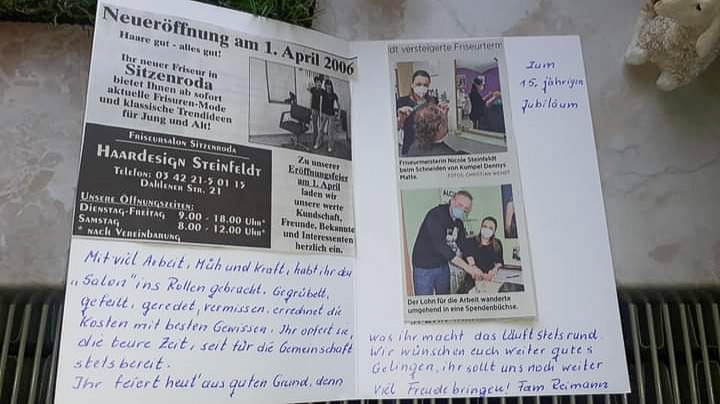 Neueröffnung am 1. April 2006
Haare gut - alles gut!
Ihr neuer Friseur in
Sitzenroda
bietet Ihnen ab sofort
aktuelle Frisuren-Mode
und klassische Trendideen
für Jung und Alt!
FRISEURSALON SITZENRODA
HAARDESIGN STEINFELDT
TELEFON: 03 42 21-5 01 15
DAHLENER STR. 21
UNSERE ÖFFNUNGSZEITEN:
DIENSTAG-FREITAG 9.00 - 18.00 UHR*
SAMSTAG 8.00 - 12.00 UHR*
* NACH VEREINBARUNG
Zu unserer
Eröffnungsfeier
am 1. April
laden wir
unsere werte
Kundschaft,
Freunde, Bekannte
und Interessenten
herzlich ein.
Mit viel Arbeit, Müh und Kraft, habt ihr den
„Salon" ins Rollen gebracht. Gegrübelt,
gefeilt, geredet, vermissen, errechnet die
Kosten mit besten Gewissen. Ihr opfert sie,
die teure Zeit, seit für die Gemeinschaft
stets bereit.
Ihr feiert heut' aus guten Grund, denn
dt versteigerte Friseurterm
Friseurmeisterin Nicole Steinfeldt
beim Schneiden von Kumpel Dennys
Matte.
FOTOS: CHRISTIAN WENDT
Der Lohn für die Arbeit wanderte
umgehend in eine Spendenbüchse.
Zum
15. jährigen
Jubiläum
was ihr macht das läuft stets rund.
Wir wünschen euch weiter gutes
Gelingen, ihr sollt uns noch weiter
viel Freude bringen! Fam Reimann